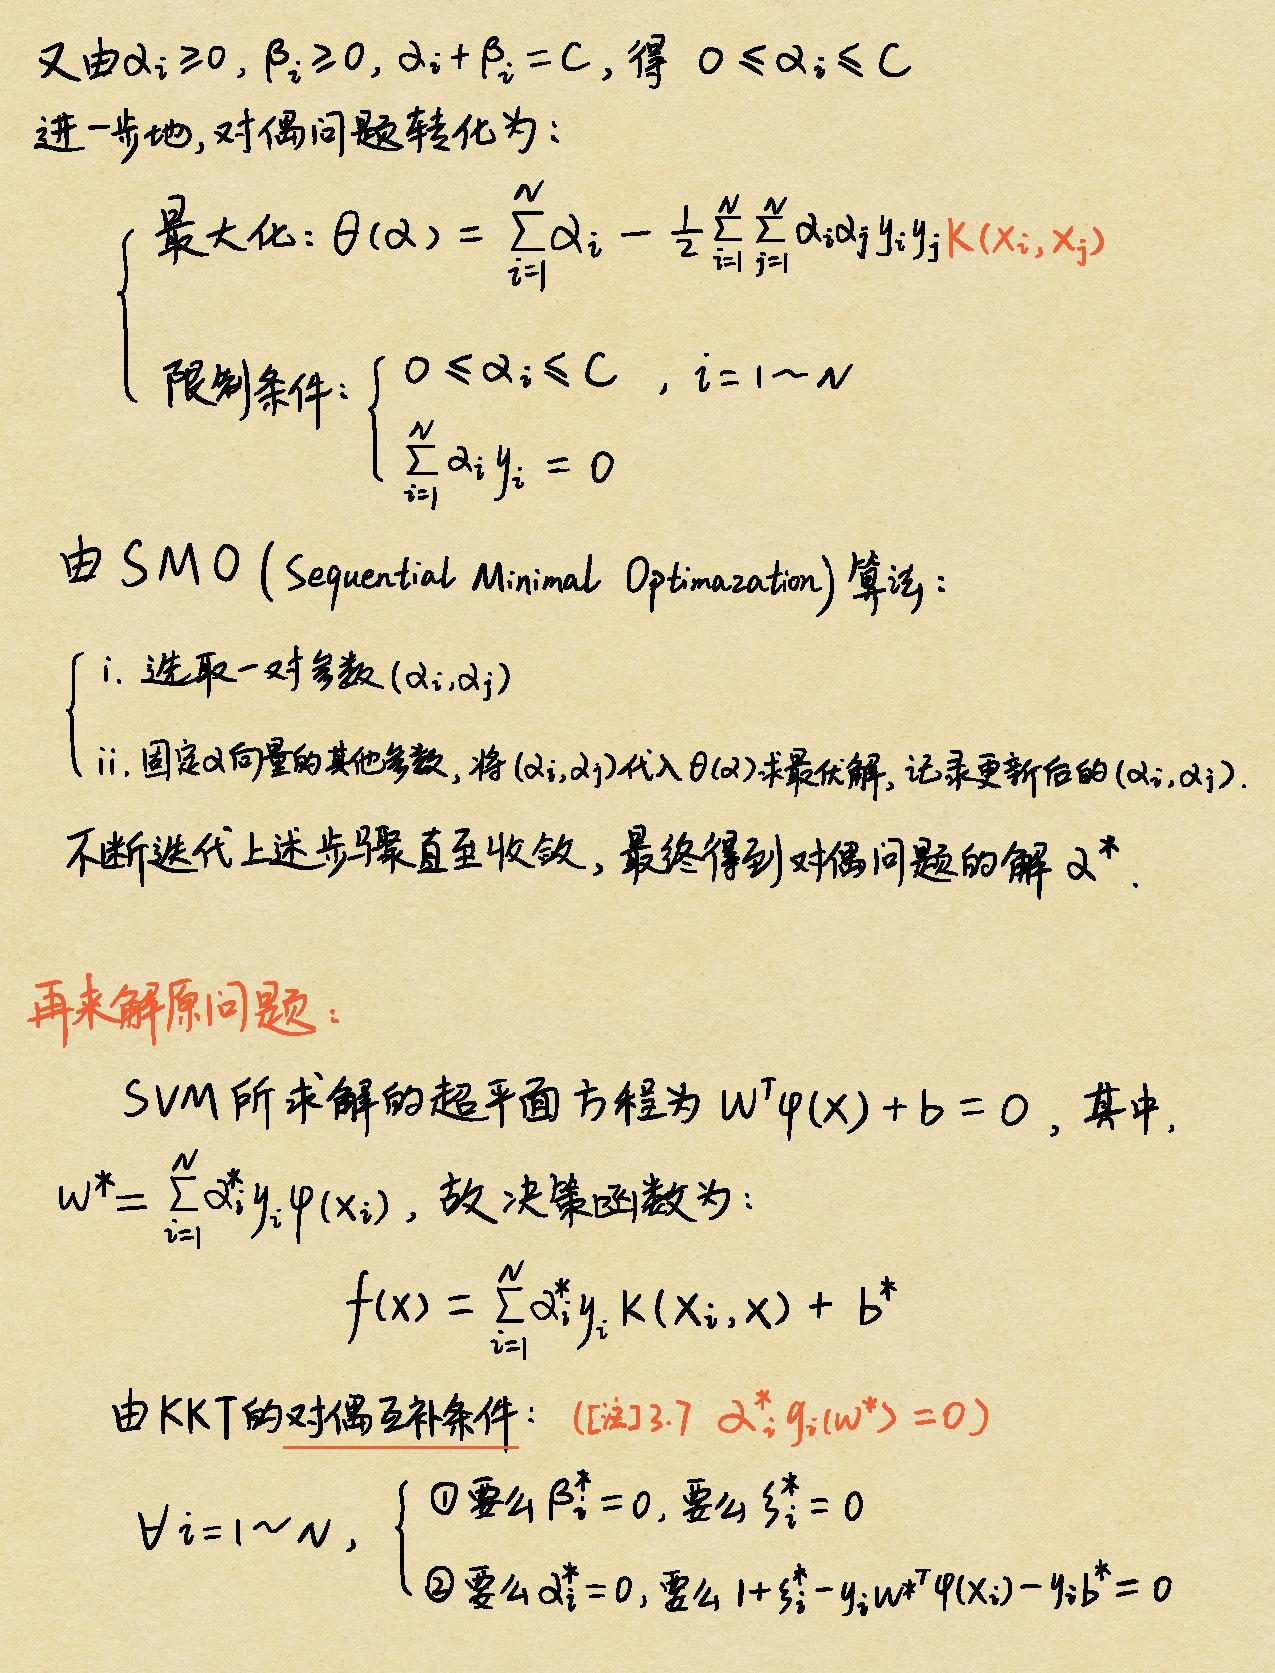 又由αᵢ≥0, βᵢ≥0, αᵢ+βᵢ=C, 得 0≤αᵢ≤C
进一步地,对偶问题转化为:
最大化: θ(α) = Σ_{i=1}^{N} αᵢ - 1/2 Σ_{i=1}^{N} Σ_{j=1}^{N} αᵢαⱼyᵢyⱼK(xᵢ,xⱼ)
限制条件: { 0≤αᵢ≤C , i=1~N
Σ_{i=1}^{N} αᵢyᵢ = 0
由SMO(Sequential Minimal Optimazation)算法:
i. 选取一对参数(αᵢ,αⱼ)
ii. 固定α向量的其他参数,将(αᵢ,αⱼ)代入θ(α)求最优解,记录更新后的(αᵢ,αⱼ).
不断迭代上述步骤直至收敛,最终得到对偶问题的解α*.
再来解原问题:
SVM所求解的超平面方程为 Wᵀφ(x)+b=0,其中,
w*=Σ_{i=1}^{N} αᵢ*yᵢφ(xᵢ),故决策函数为:
f(x) = Σ_{i=1}^{N} αᵢ*yᵢK(xᵢ,x) + b*
由KKT的对偶互补条件: ([注]3.7 αᵢ*gᵢ(w*)=0)
∀i=1~N, { ①要么βᵢ*=0,要么ξᵢ*=0
②要么αᵢ*=0,要么1+ξᵢ*-yᵢw*ᵀφ(xᵢ)-yᵢb*=0